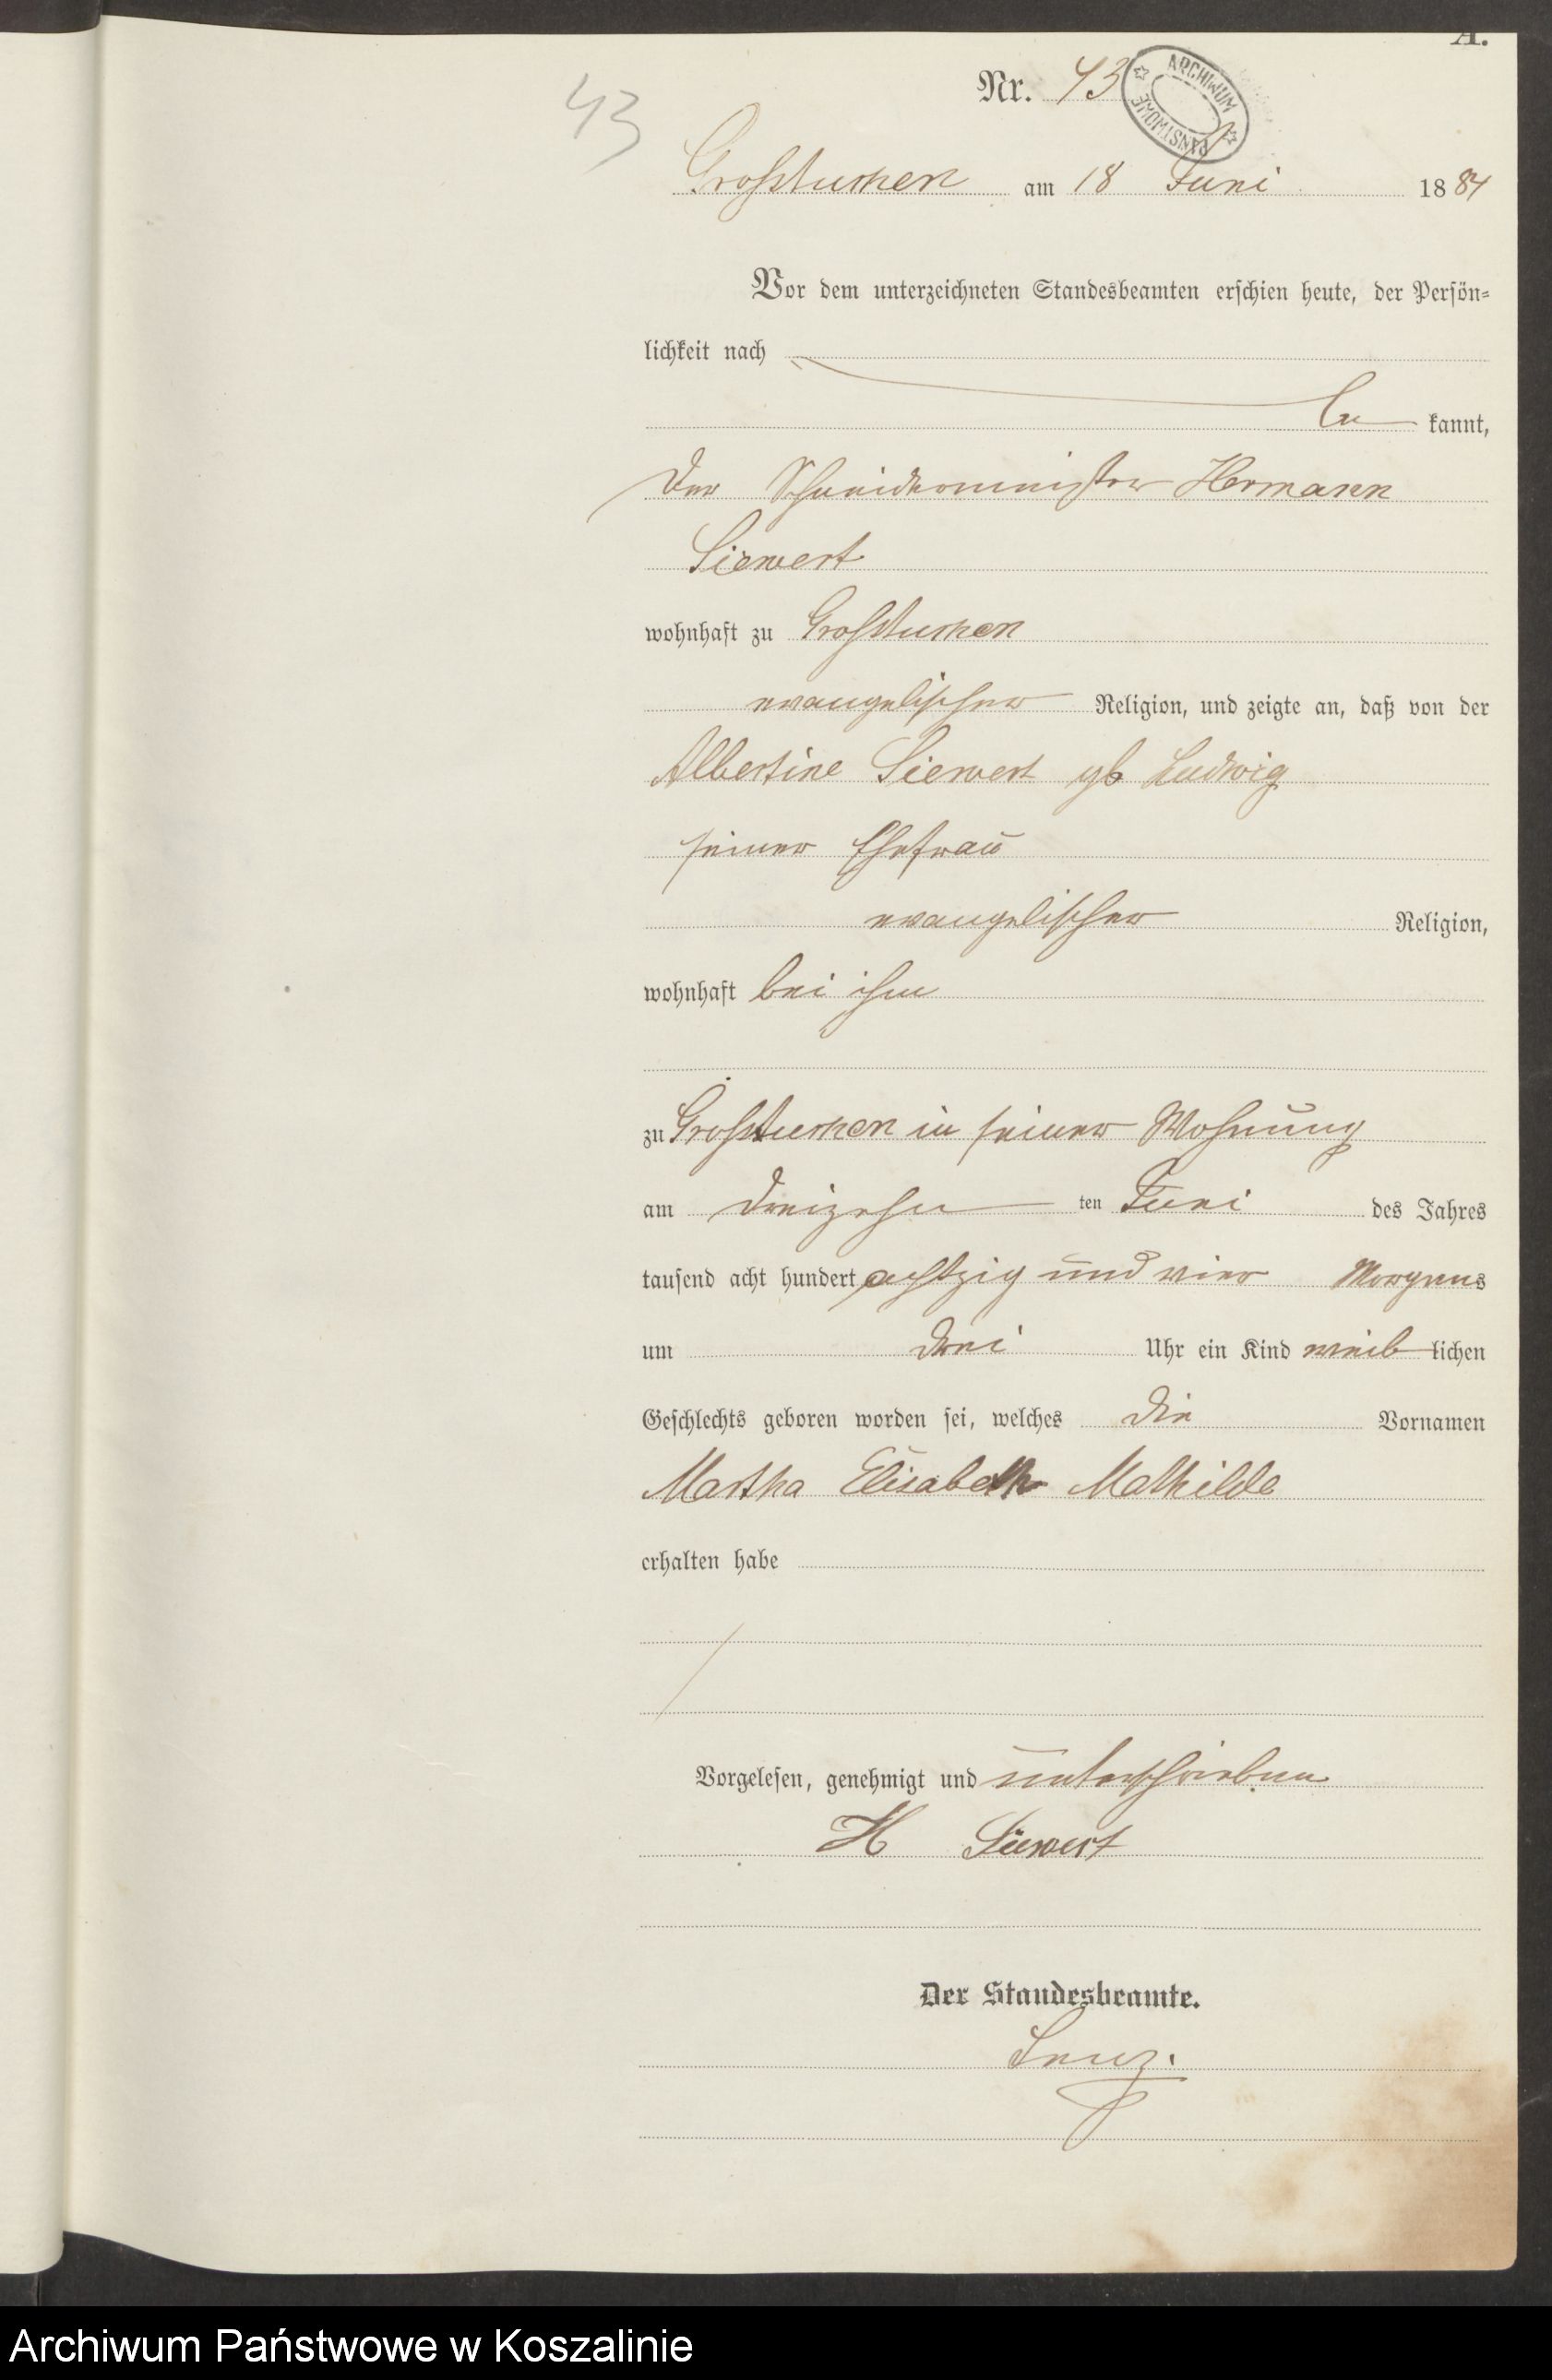 A.
43
Nr. 43
ARCHIWUM PAŃSTWOWE
Großtuchen am 18 Juni 1884
Vor dem unterzeichneten Standesbeamten erschien heute, der Persön-
lichkeit nach
be kannt,
der Schneidermeister Hermann
Siewert
wohnhaft zu Großtuchen
evangelischer Religion, und zeigte an, daß von der
Albertine Siewert gb Ludwig
seiner Ehefrau
evangelischer Religion,
wohnhaft bei ihm
zu Großtuchen in seiner Wohnung
am dreizehn ten Juni des Jahres
tausend acht hundert achtzig und vier Morgens
um drei Uhr ein Kind weib lichen
Geschlechts geboren worden sei, welches die Vornamen
Martha Elisabeth Mathilde
erhalten habe
Vorgelesen, genehmigt und unterschrieben
H Siewert
Der Standesbeamte.
Lenz.
Archiwum Państwowe w Koszalinie